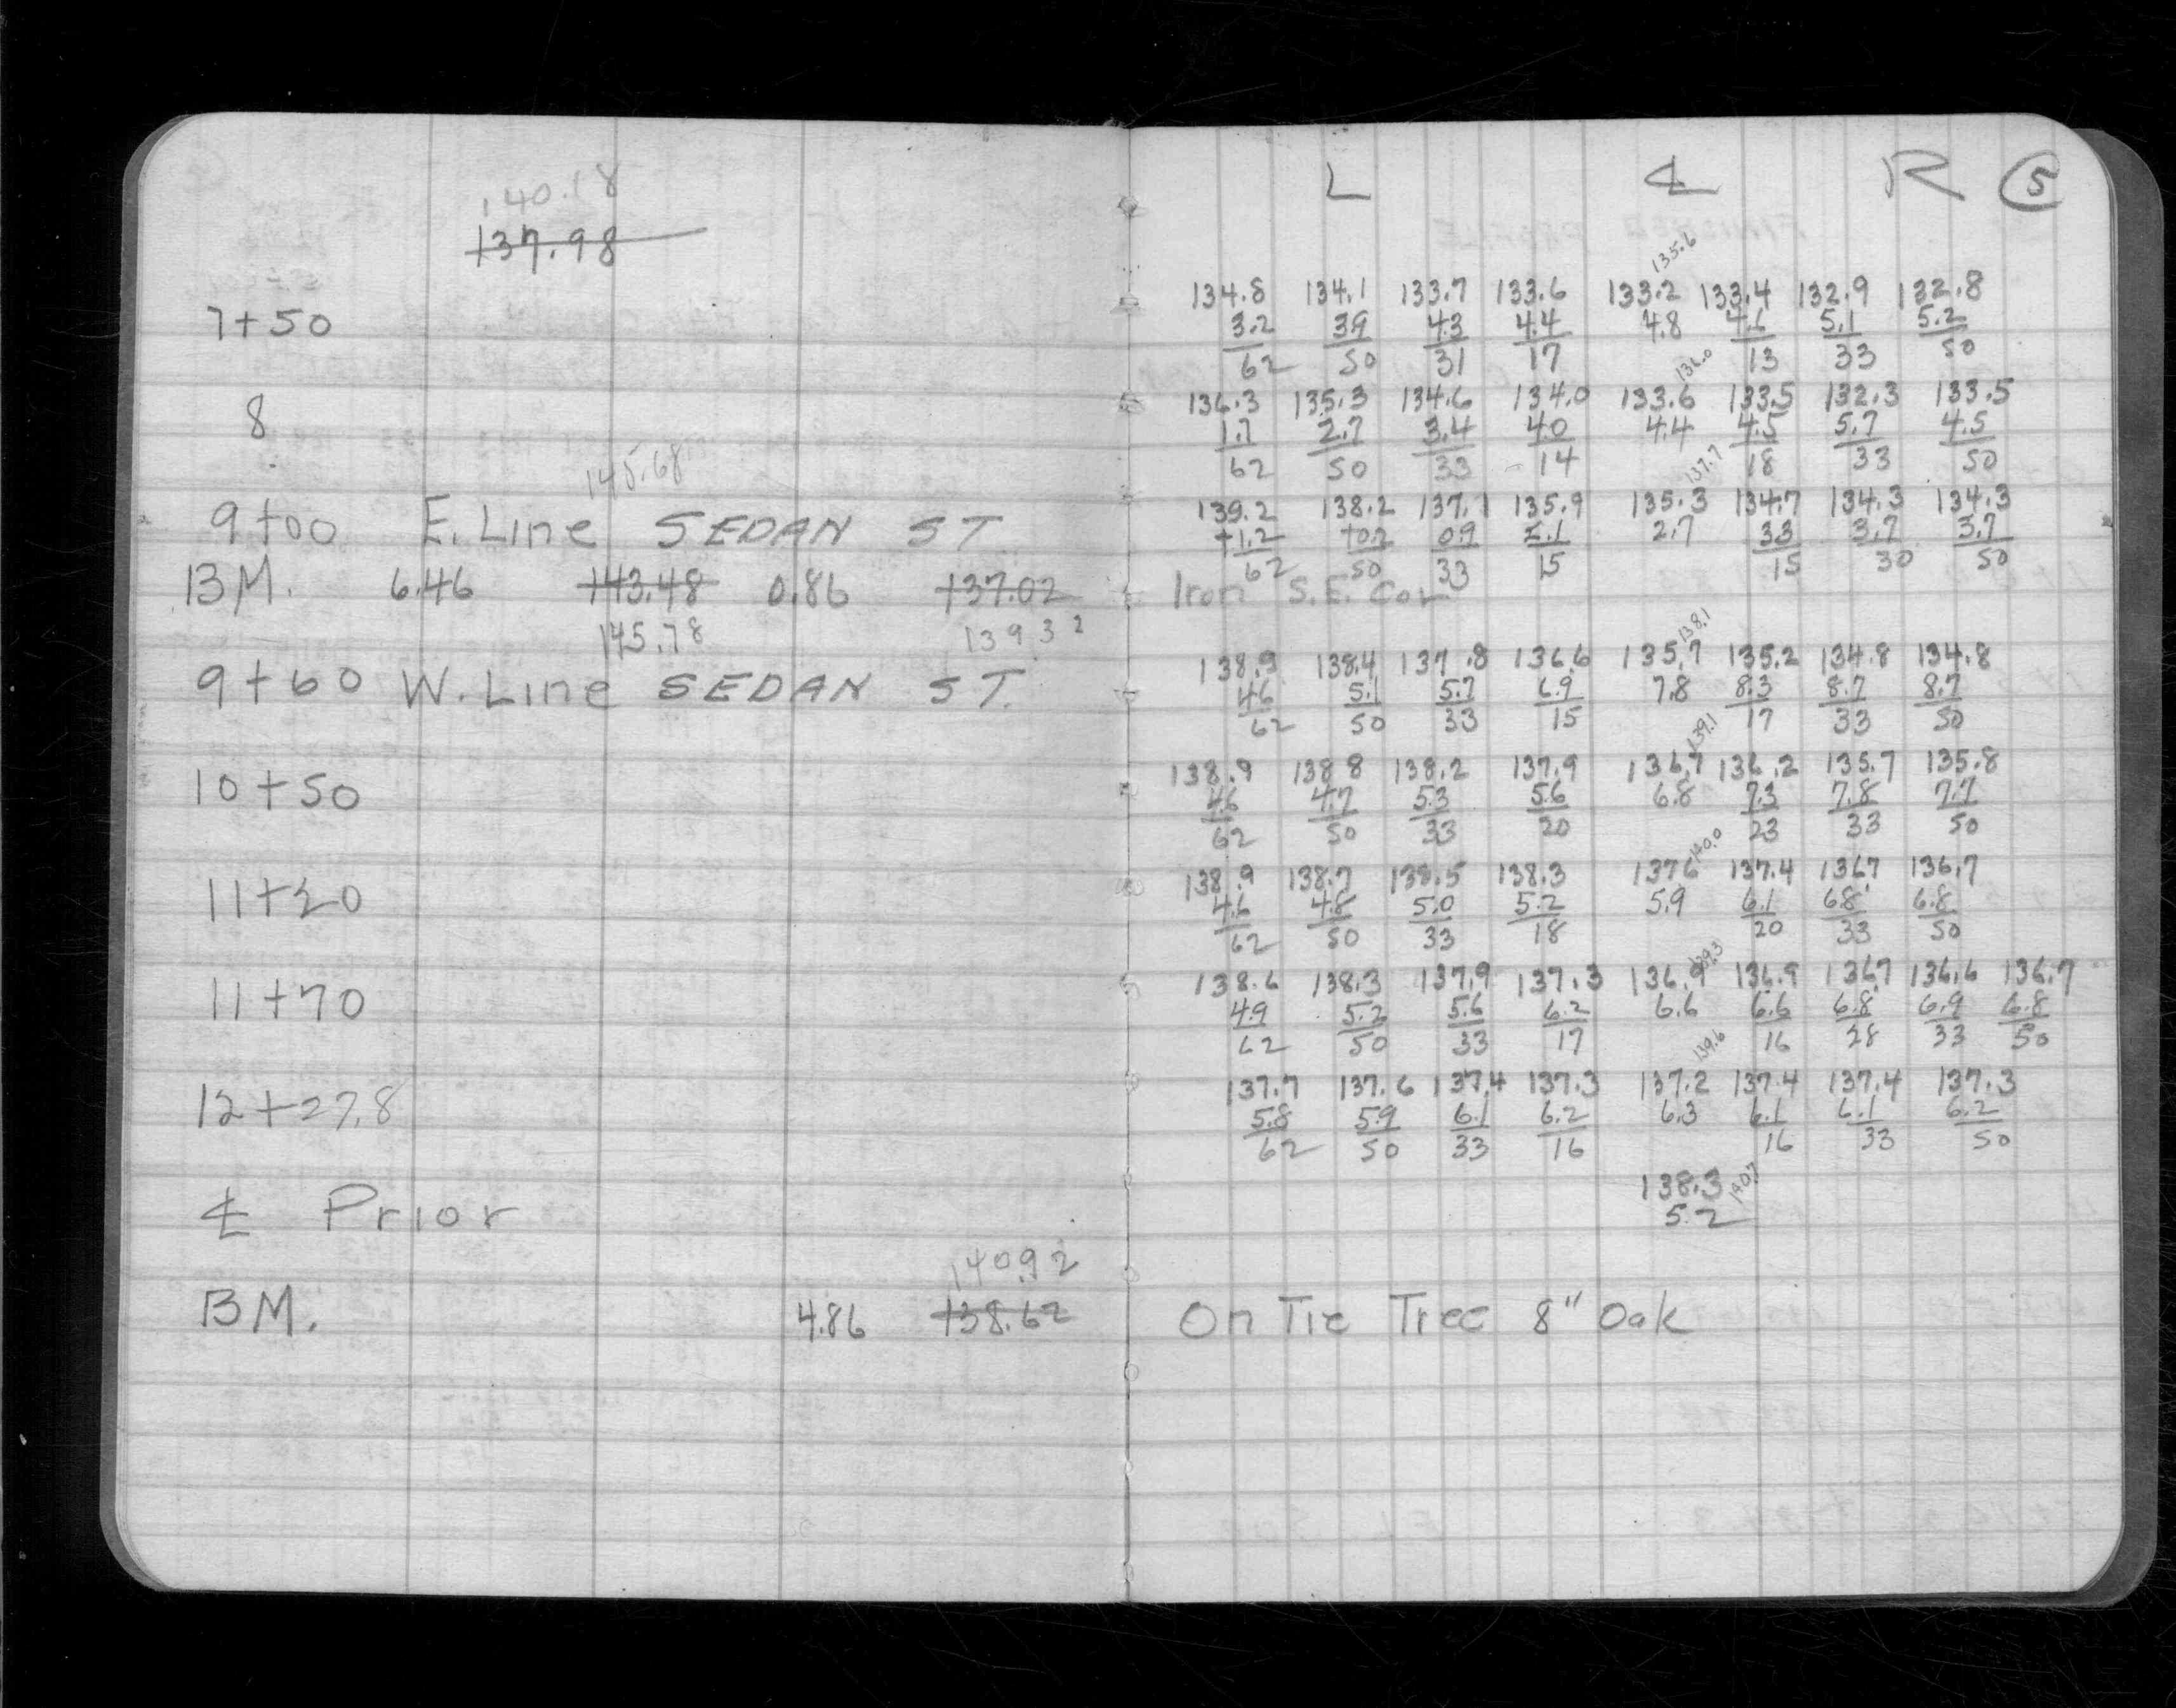 140.18
137.98
7+50
8
145.68
9+00 E. Line SEDAN ST.
BM. 6.46 143.48 0.86 137.02
145.78 139.32
9+60 W. Line SEDAN ST.
10+50
11+20
11+70
12+27.8
℄ Prior
140.92
BM. 4.86 138.62
L ℄ R 5
135.6
134.8 134.1 133.7 133.6 133.2 133.4 132.9 132.8
3.2 3.9 4.3 4.4 4.8 4.6 5.1 5.2
62 50 31 17 13 33 50
136.0
136.3 135.3 134.6 134.0 133.6 133.5 132.3 133.5
1.7 2.7 3.4 4.0 4.4 4.5 5.7 4.5
62 50 33 14 18 33 50
137.7
139.2 138.2 137.1 135.9 135.3 134.7 134.3 134.3
+1.2 +0.2 0.9 2.1 2.7 3.3 3.7 3.7
62 50 33 15 15 30 50
Iron S.E. Cor
138.1
138.9 138.4 137.8 136.6 135.7 135.2 134.8 134.8
4.6 5.1 5.7 6.9 7.8 8.3 8.7 8.7
62 50 33 15 17 33 50
139.1
138.9 138.8 138.2 137.9 136.7 136.2 135.7 135.8
4.6 4.7 5.3 5.6 6.8 7.3 7.8 7.7
62 50 33 20 23 33 50
140.0
138.9 138.7 138.5 138.3 137.6 137.4 136.7 136.7
4.6 4.8 5.0 5.2 5.9 6.1 6.8 6.8
62 50 33 18 20 33 50
139.3
138.6 138.3 137.9 137.3 136.9 136.9 136.7 136.6 136.7
4.9 5.2 5.6 6.2 6.6 6.6 6.8 6.9 6.8
62 50 33 17 16 28 33 50
139.6
137.7 137.6 137.4 137.3 137.2 137.4 137.4 137.3
5.8 5.9 6.1 6.2 6.3 6.1 6.1 6.2
62 50 33 16 16 33 50
138.3 140.7
5.2
On Tie Tree 8" Oak